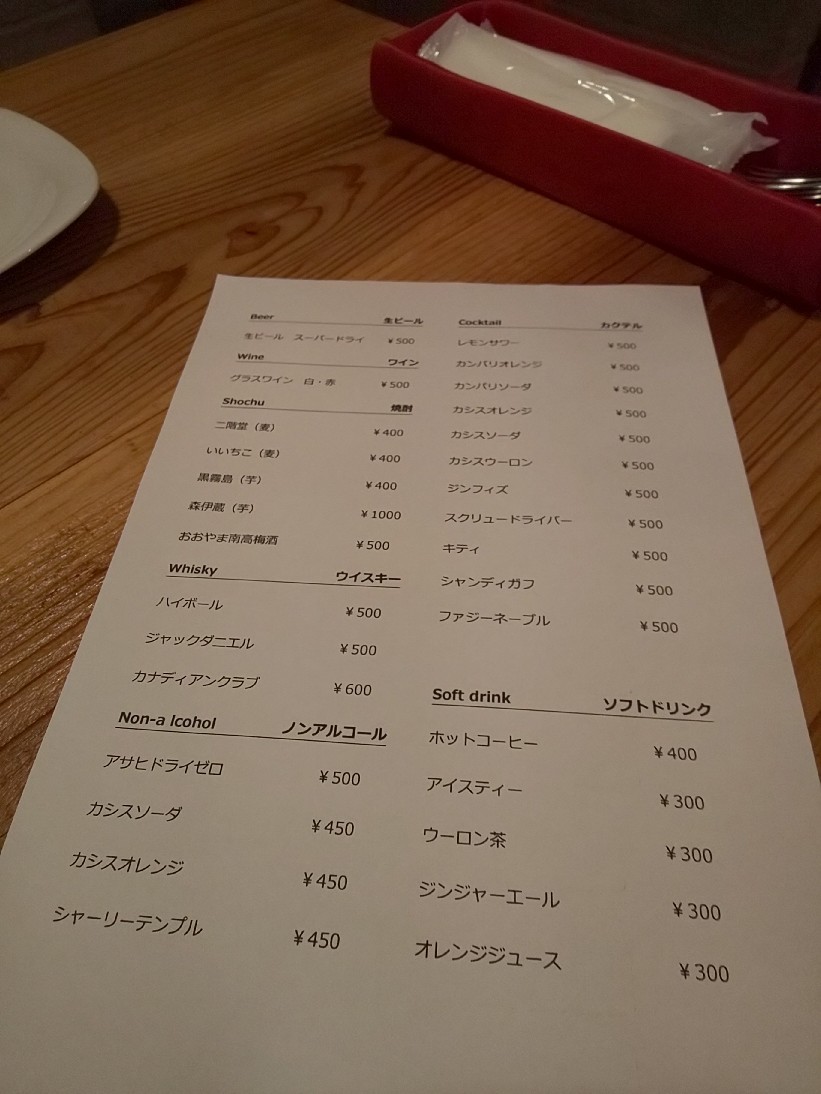 Beer 生ビール
生ビール スーパードライ ¥500
Wine ワイン
グラスワイン 白・赤 ¥500
Shochu 焼酎
二階堂（麦） ¥400
いいちこ（麦） ¥400
黒霧島（芋） ¥400
森伊蔵（芋） ¥1000
おおやま南高梅酒 ¥500
Whisky ウイスキー
ハイボール ¥500
ジャックダニエル ¥500
カナディアンクラブ ¥600
Non-a lcohol ノンアルコール
アサヒドライゼロ ¥500
カシスソーダ ¥450
カシスオレンジ ¥450
シャーリーテンプル ¥450
Cocktail カクテル
レモンサワー ¥500
カンパリオレンジ ¥500
カンパリソーダ ¥500
カシスオレンジ ¥500
カシスソーダ ¥500
カシスウーロン ¥500
ジンフィズ ¥500
スクリュードライバー ¥500
キティ ¥500
シャンディガフ ¥500
ファジーネーブル ¥500
Soft drink ソフトドリンク
ホットコーヒー ¥400
アイスティー ¥300
ウーロン茶 ¥300
ジンジャーエール ¥300
オレンジジュース ¥300